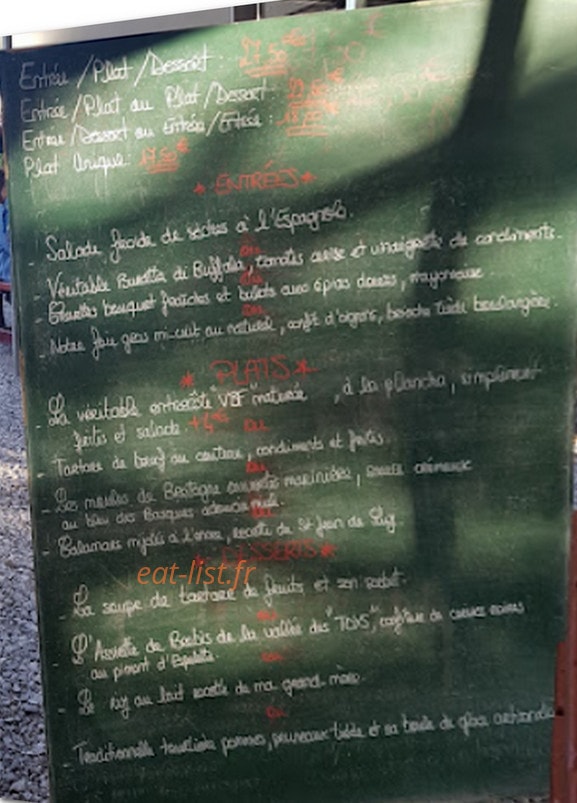 Entrée/Plat/Dessert: 27.50€
Entrée/Plat ou Plat/Dessert: €
Entrée/Dessert ou Entrée/Entrée:
Plat Unique: 17.50€
* ENTRÉES *
- Salade froide de seiches à l'Espagnole.
ou
- Véritable Buratta di Buffala, tomates cerise et vinaigrette de condiments.
ou
- Crevettes bouquet fraîches et bulots aux épices douces, mayonnaise
ou
- Notre foie gras mi-cuit au naturel, confit d'oignons, brioche tiède boulangère.
* PLATS *
- La véritable entrecôte "VBF" maturée, à la plancha, simplement
frites et salade +4€
ou
- Tartare de bœuf au couteau, condiments et frites.
ou
- Les moules de Bretagne marinières, sauce crémeuse
au bleu des Basques
ou
- Calamars mijotés à l'encre, recette de St Jean de Luz.
* DESSERTS *
eat-list.fr
- La soupe de tartare de fruits et son sorbet.
ou
- L'Assiette de Brebis de la vallée des "TOYS", confiture de cerises noires
au piment d'Espelette.
ou
- Le riz au lait recette de ma grand mère.
ou
- Traditionnelle tourtière pommes, pruneaux tiède et sa boule de glace artisanale